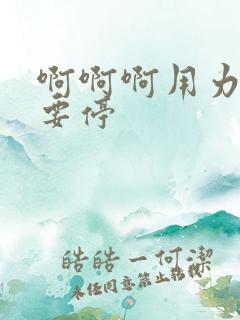 啊啊啊用力
要停
皓皓一何潔
未经同意禁止转载